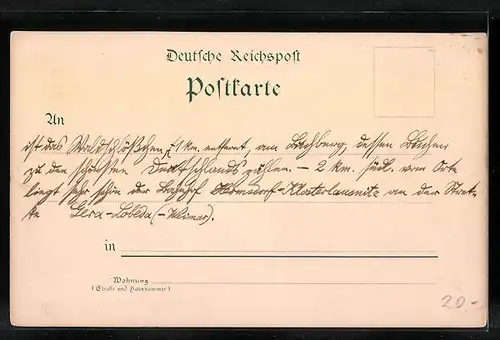 Deutsche Reichspost
Postkarte
An
ist das Waldschlößchen, 1 km. entfernt, am Buchberg, dessen Buchen
zu den schönsten Deutschlands zählen. — 2 km. südl. vom Orte
liegt sehr schön der Bahnhof Hermsdorf-Klosterlausnitz an der Streck-
ke Gera-Lobeda (-Weimar).
in
Wohnung
(Straße und Hausnummer)
20.-